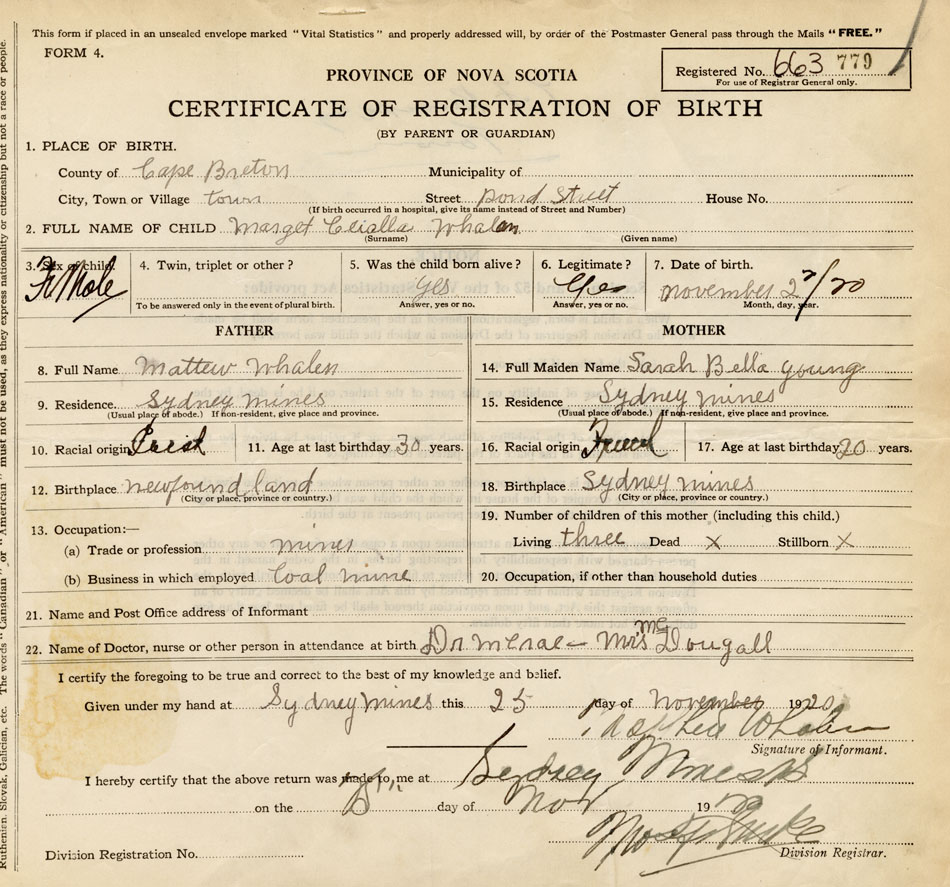 This form if placed in an unsealed envelope marked "Vital Statistics" and properly addressed will, by order of the Postmaster General pass through the Mails "FREE."
FORM 4.
Registered No. 663 779
For use of Registrar General only.
PROVINCE OF NOVA SCOTIA
CERTIFICATE OF REGISTRATION OF BIRTH
(BY PARENT OR GUARDIAN)
1. PLACE OF BIRTH.
County of Cape Breton Municipality of
City, Town or Village town Street pond Street House No.
(If birth occurred in a hospital, give its name instead of Street and Number)
2. FULL NAME OF CHILD Marget Whalen
(Surname) (Given name)
3. Sex of child. 4. Twin, triplet or other? 5. Was the child born alive? 6. Legitimate? 7. Date of birth.
FeMale yes yes november 2 /20
To be answered only in the event of plural birth. Answer, yes or no. Answer, yes or no. Month, day, year.
FATHER MOTHER
8. Full Name Mattew Whalen 14. Full Maiden Name Sarah Bella young
9. Residence. Sydney mines 15. Residence Sydney mines
(Usual place of abode.) If non-resident, give place and province. (Usual place of abode.) If non-resident, give place and province.
10. Racial origin 11. Age at last birthday 30 years. 16. Racial origin French 17. Age at last birthday 20 years.
12. Birthplace newfoundland 18. Birthplace Sydney mines
(City or place, province or country.) (City or place, province or country.)
13. Occupation:— 19. Number of children of this mother (including this child.)
(a) Trade or profession mines Living three Dead X Stillborn X
(b) Business in which employed Coal mine 20. Occupation, if other than household duties
21. Name and Post Office address of Informant
22. Name of Doctor, nurse or other person in attendance at birth Dr McRae Mrs McDougall
I certify the foregoing to be true and correct to the best of my knowledge and belief.
Given under my hand at Sydney mines this 25 day of November 1920
Whalen
Signature of Informant.
I hereby certify that the above return was made to me at Sydney Mines
on the day of Nov 19
Division Registration No. Division Registrar.
Ruthenian, Slovak, Galician, etc. The words "Canadian" or "American" must not be used, as they express nationality or citizenship but not a race or people.